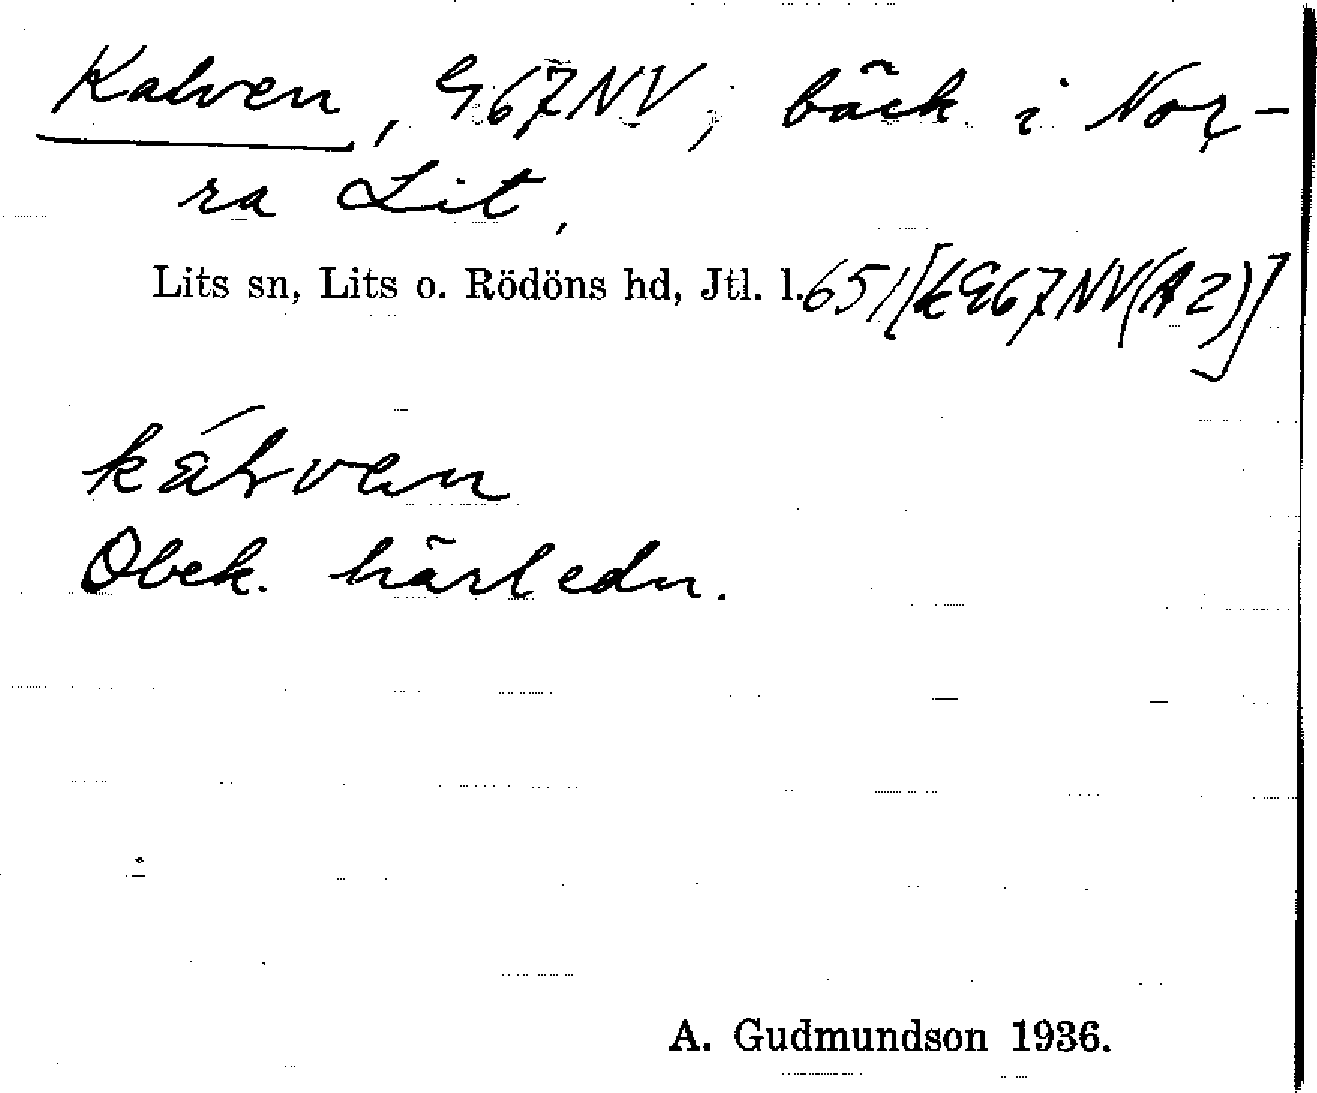 Kalven, G67NV, bäck i Nor-
ra Lit,
Lits sn, Lits o. Rödöns hd, Jtl. l. 651[kG67NV(A2)]
kálven
Obek. härledn.
A. Gudmundson 1936.